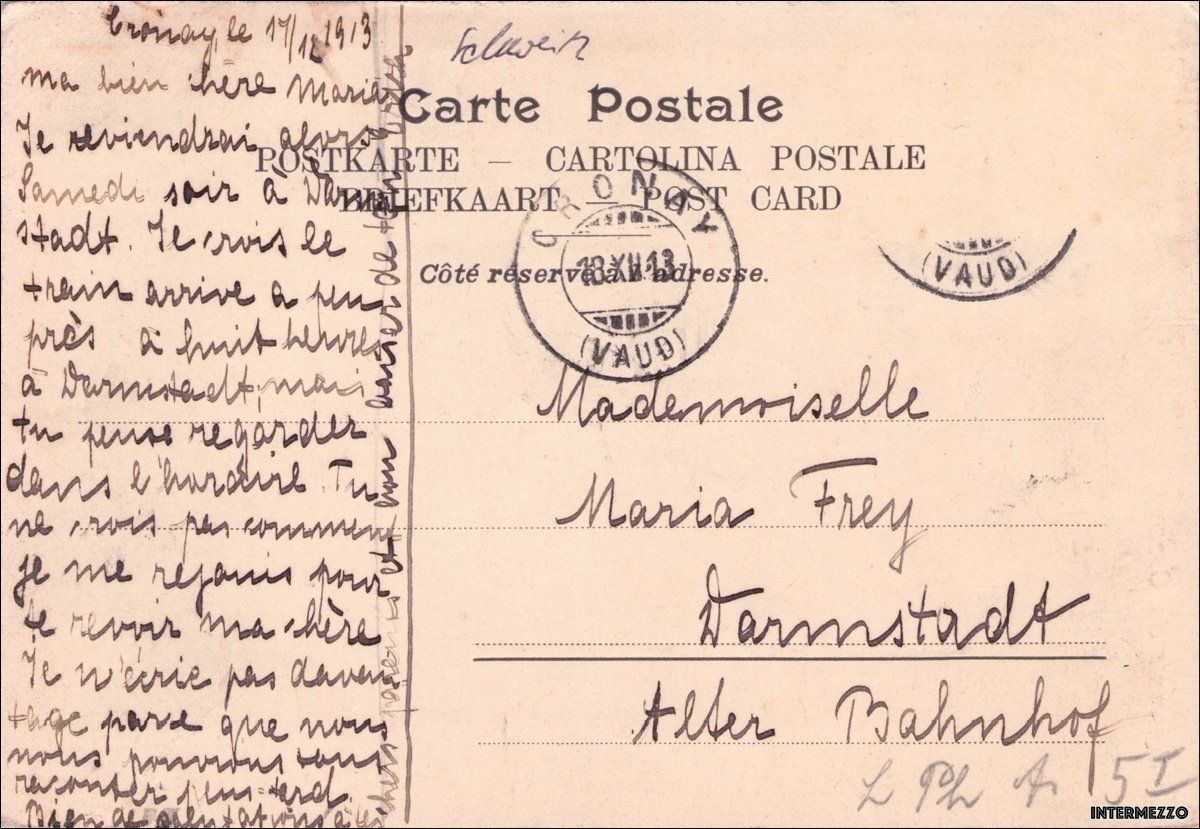 Cronay, le 17/12 1913
ma bien chère Maria
Je reviendrai alors
Samedi soir à Darm
stadt. Je crois le
train arrive a peu
près à huit heures
à Darmstadt, mais
tu peuse regarder
dans l'horaire. Tu
ne crois pas comment
je me rejouis pour
te revoir ma chère
Je n'écrie pas daven
tage parce que nous
nous pouvions tous
raconter peus-terd.
Bien de salutations à tes
chers parents et bon baiser de ton
Schweiz
Carte Postale
POSTKARTE – CARTOLINA POSTALE
BRIEFKAART – POST CARD
Côté réservé à l'adresse.
CRONAY
18.XII.13
(VAUD)
(VAUD)
Mademoiselle
Maria Frey
Darmstadt
Alter Bahnhof
5 I
INTERMEZZO